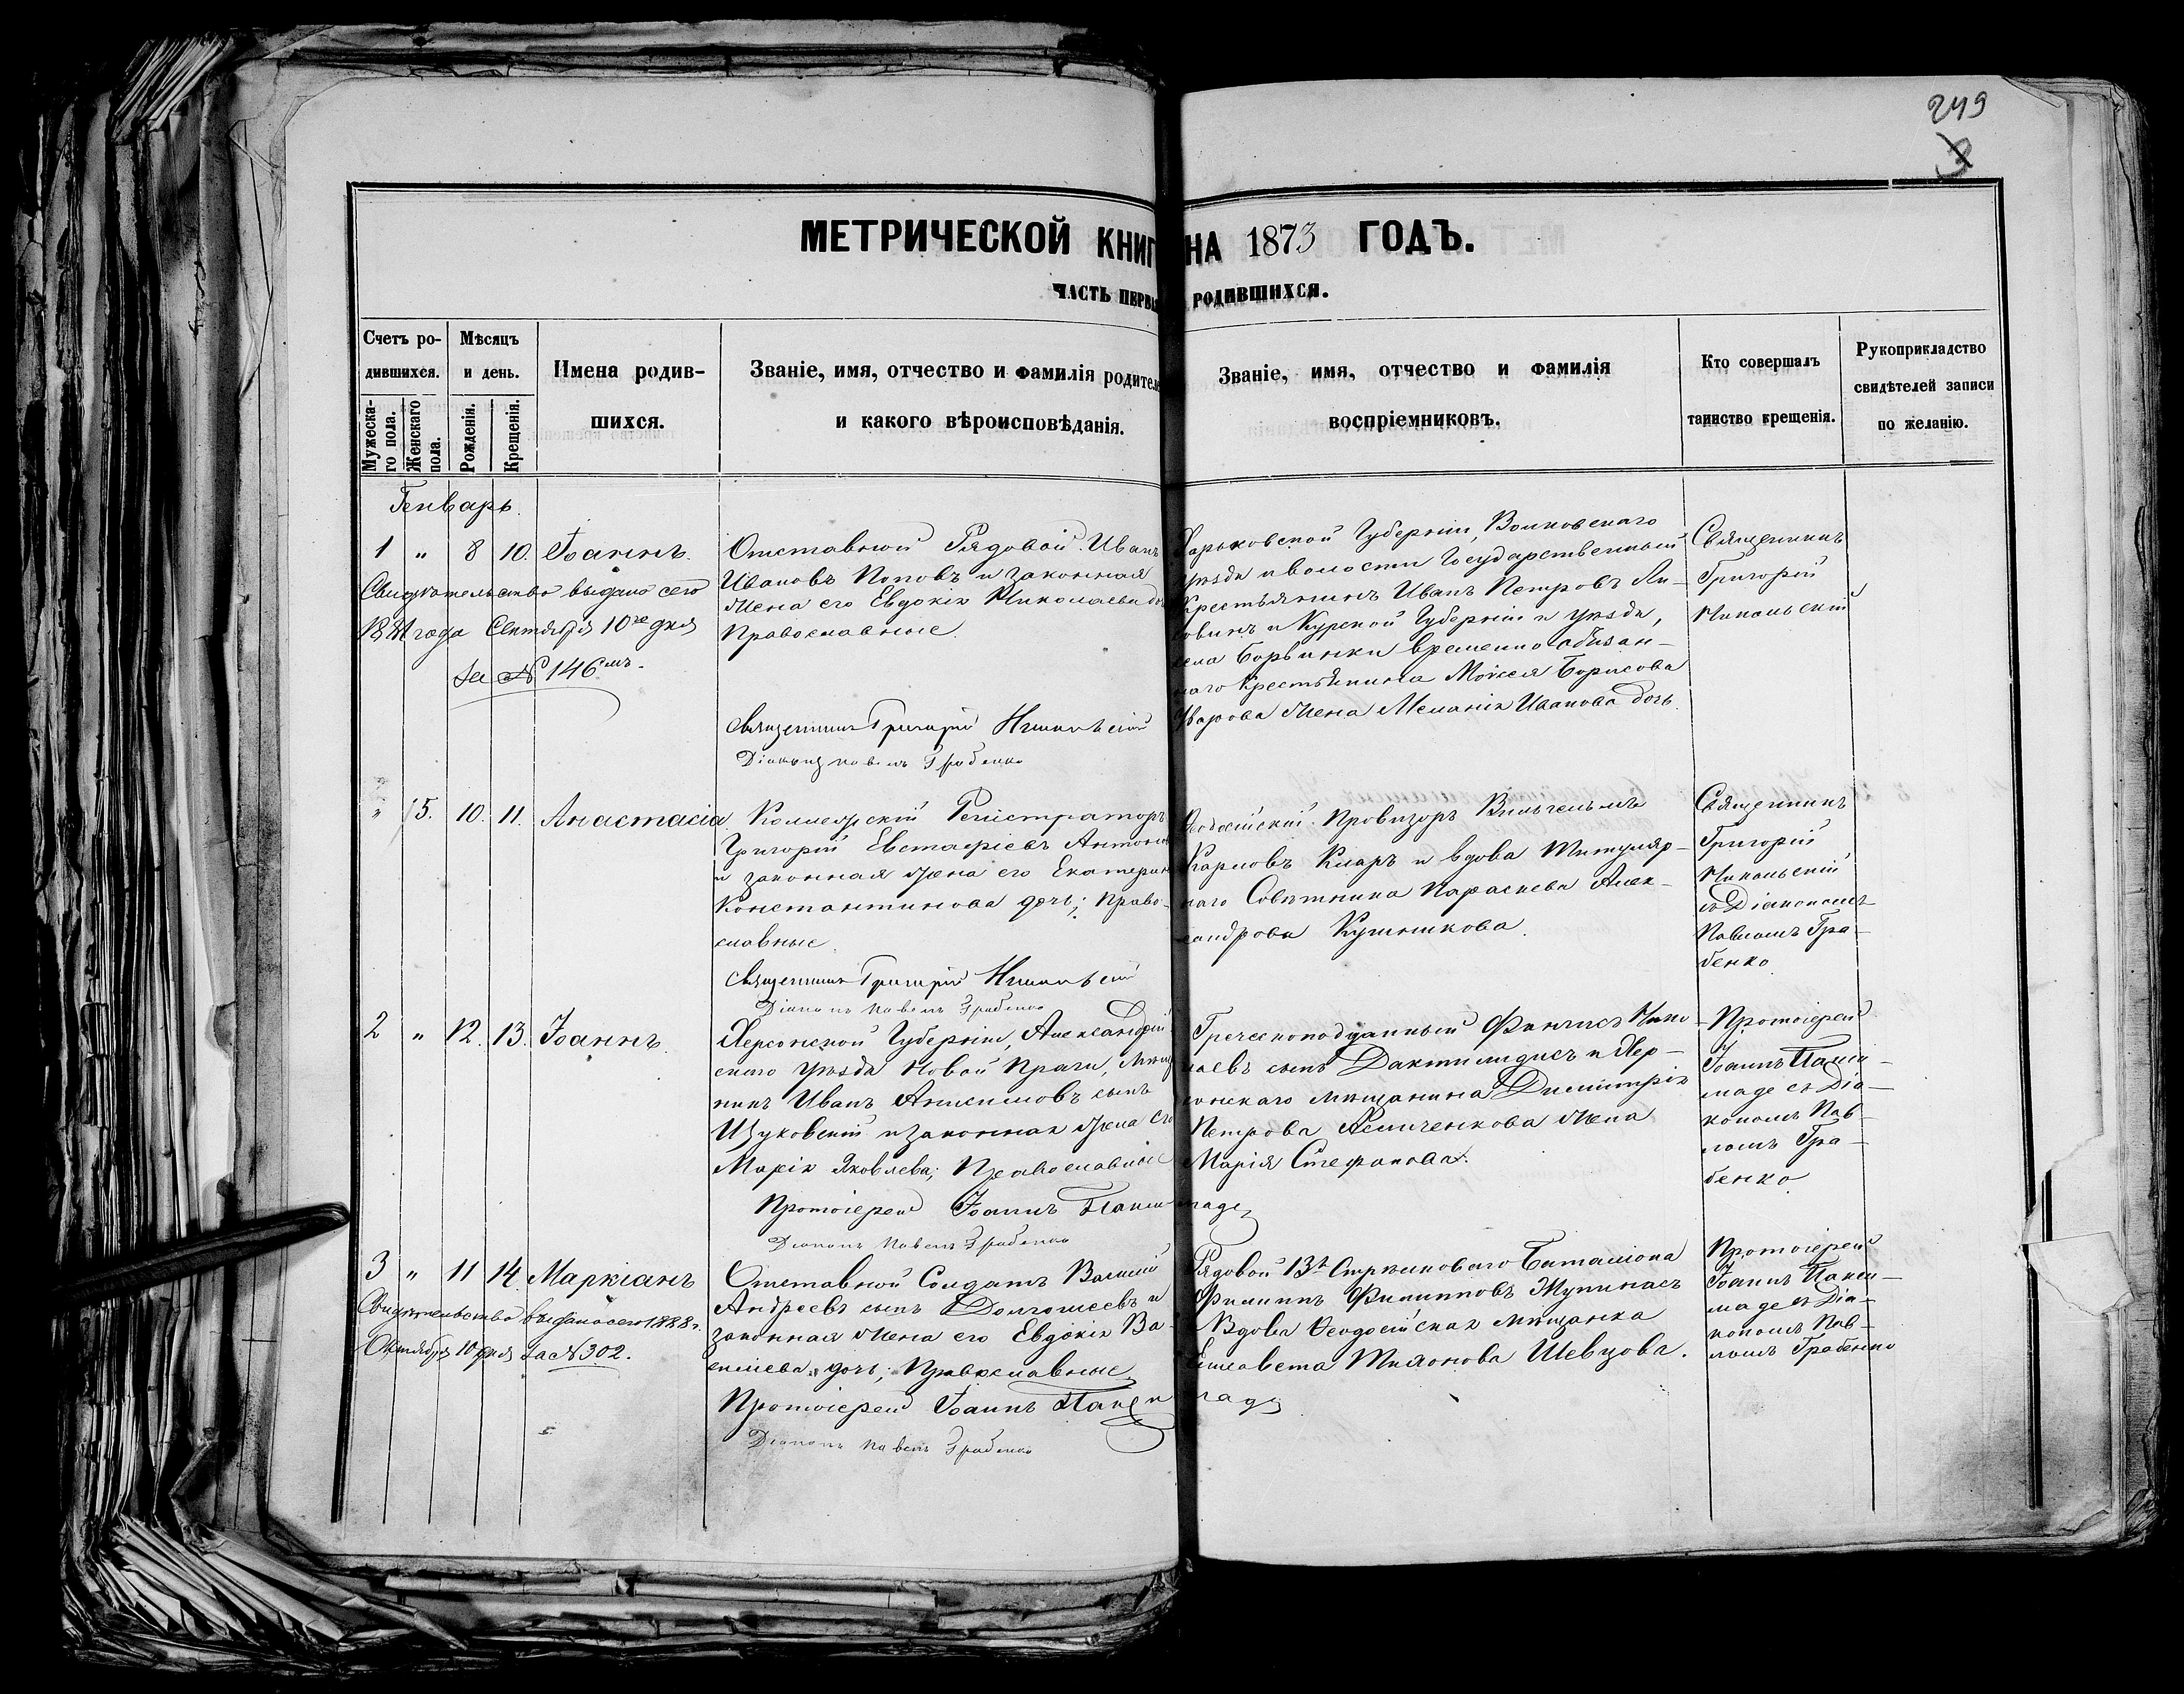 249
3
МЕТРИЧЕСКОЙ КНИГ НА 1873 ГОДЪ.
ЧАСТЬ ПЕРВА РОДИВШИХСЯ.
Счетъ ро-
дившихся.
Мужеска-
го пола.
Женскаго
пола.
Мѣсяцъ
и день.
Рожденія.
Крещенія.
Имена родив-
шихся.
Званіе, имя, отчество и фамилія родителе
и какого вѣроисповѣданія.
Званіе, имя, отчество и фамилія
воспріемниковъ.
Кто совершалъ
таинство крещенія.
Рукоприкладство
свидѣтелей записи
по желанію.
Генварь.
1 " 8 10. Іоаннъ.
Свидѣтельство выдано сего
1881 года Сентября 10го дня
за № 146мъ.
Отставной Рядовой Иванъ
Ивановъ Поповъ и законная
жена его Евдокія Николаева до
Православные.
Священникъ Григорій Никольскій
Діаконъ Павелъ Грабенко
Харьковской Губерніи, Волковскаго
уѣзда и волости Государственный
Крестьянинъ Иванъ Петровъ Ли-
овинъ и Курской Губерніи и уѣзда,
села временно обязан-
наго Крестьянина Моисея Борисова
Уварова жена Меланія Иванова дочь.
Священникъ
Григорій
Никольскій
" 5. 10. 11. Анастасія.
Коллежскій Регистраторъ
Григорій Евстафіевъ Антоно
и законная жена его Екатерин
Константинова дочь; Право-
славные.
Священникъ Григорій Никольскій
Діаконъ Павелъ Грабенко
Ѳеодосійскій Провизоръ Вильгельмъ
Карловъ Кларъ и вдова Титуляр-
наго Совѣтника Параскева Алек-
сандрова Кушникова.
Священникъ
Григорій
Никольскій
съ Діакономъ
Павломъ Гра-
бенко
2 " 12. 13. Іоаннъ.
Херсонской Губерніи, Александрій
скаго уѣзда Новой Праги, мѣща
нинъ Иванъ Анисимовъ сынъ
Щуковскій и законная жена его
Марія Яковлева; Православные
Протоіерей Іоаннъ Пакси маде
Діаконъ Павелъ Грабенко
Греческоподданный Нико
лаевъ сынъ Дактилидисъ и Хер-
сонскаго мѣщанина Димитрія
Петрова жена
Марія Стефанова.
Протоіерей
Іоаннъ Пакси-
маде съ Діа-
кономъ Пав-
ломъ Гра-
бенко
3 " 11 14. Маркіанъ
Свидѣтельство выдано сего 1888 г.
Октября 10 дня за № 302.
Отставной Солдатъ Василій
Андреевъ сынъ Долгошеевъ и
законная жена его Евдокія Ва-
сильева дочь; Православные.
Протоіерей Іоаннъ Пакси маде
Діаконъ Павелъ Грабенко
Рядовой 13го Стрѣлковаго Баталіона
Филиппъ Филипповъ Жупинасъ
Вдова Ѳеодосійская мѣщанка
Елисавета Тихонова Шевцова.
Протоіерей
Іоаннъ Пакси-
маде съ Діа-
кономъ Пав-
ломъ Грабенко